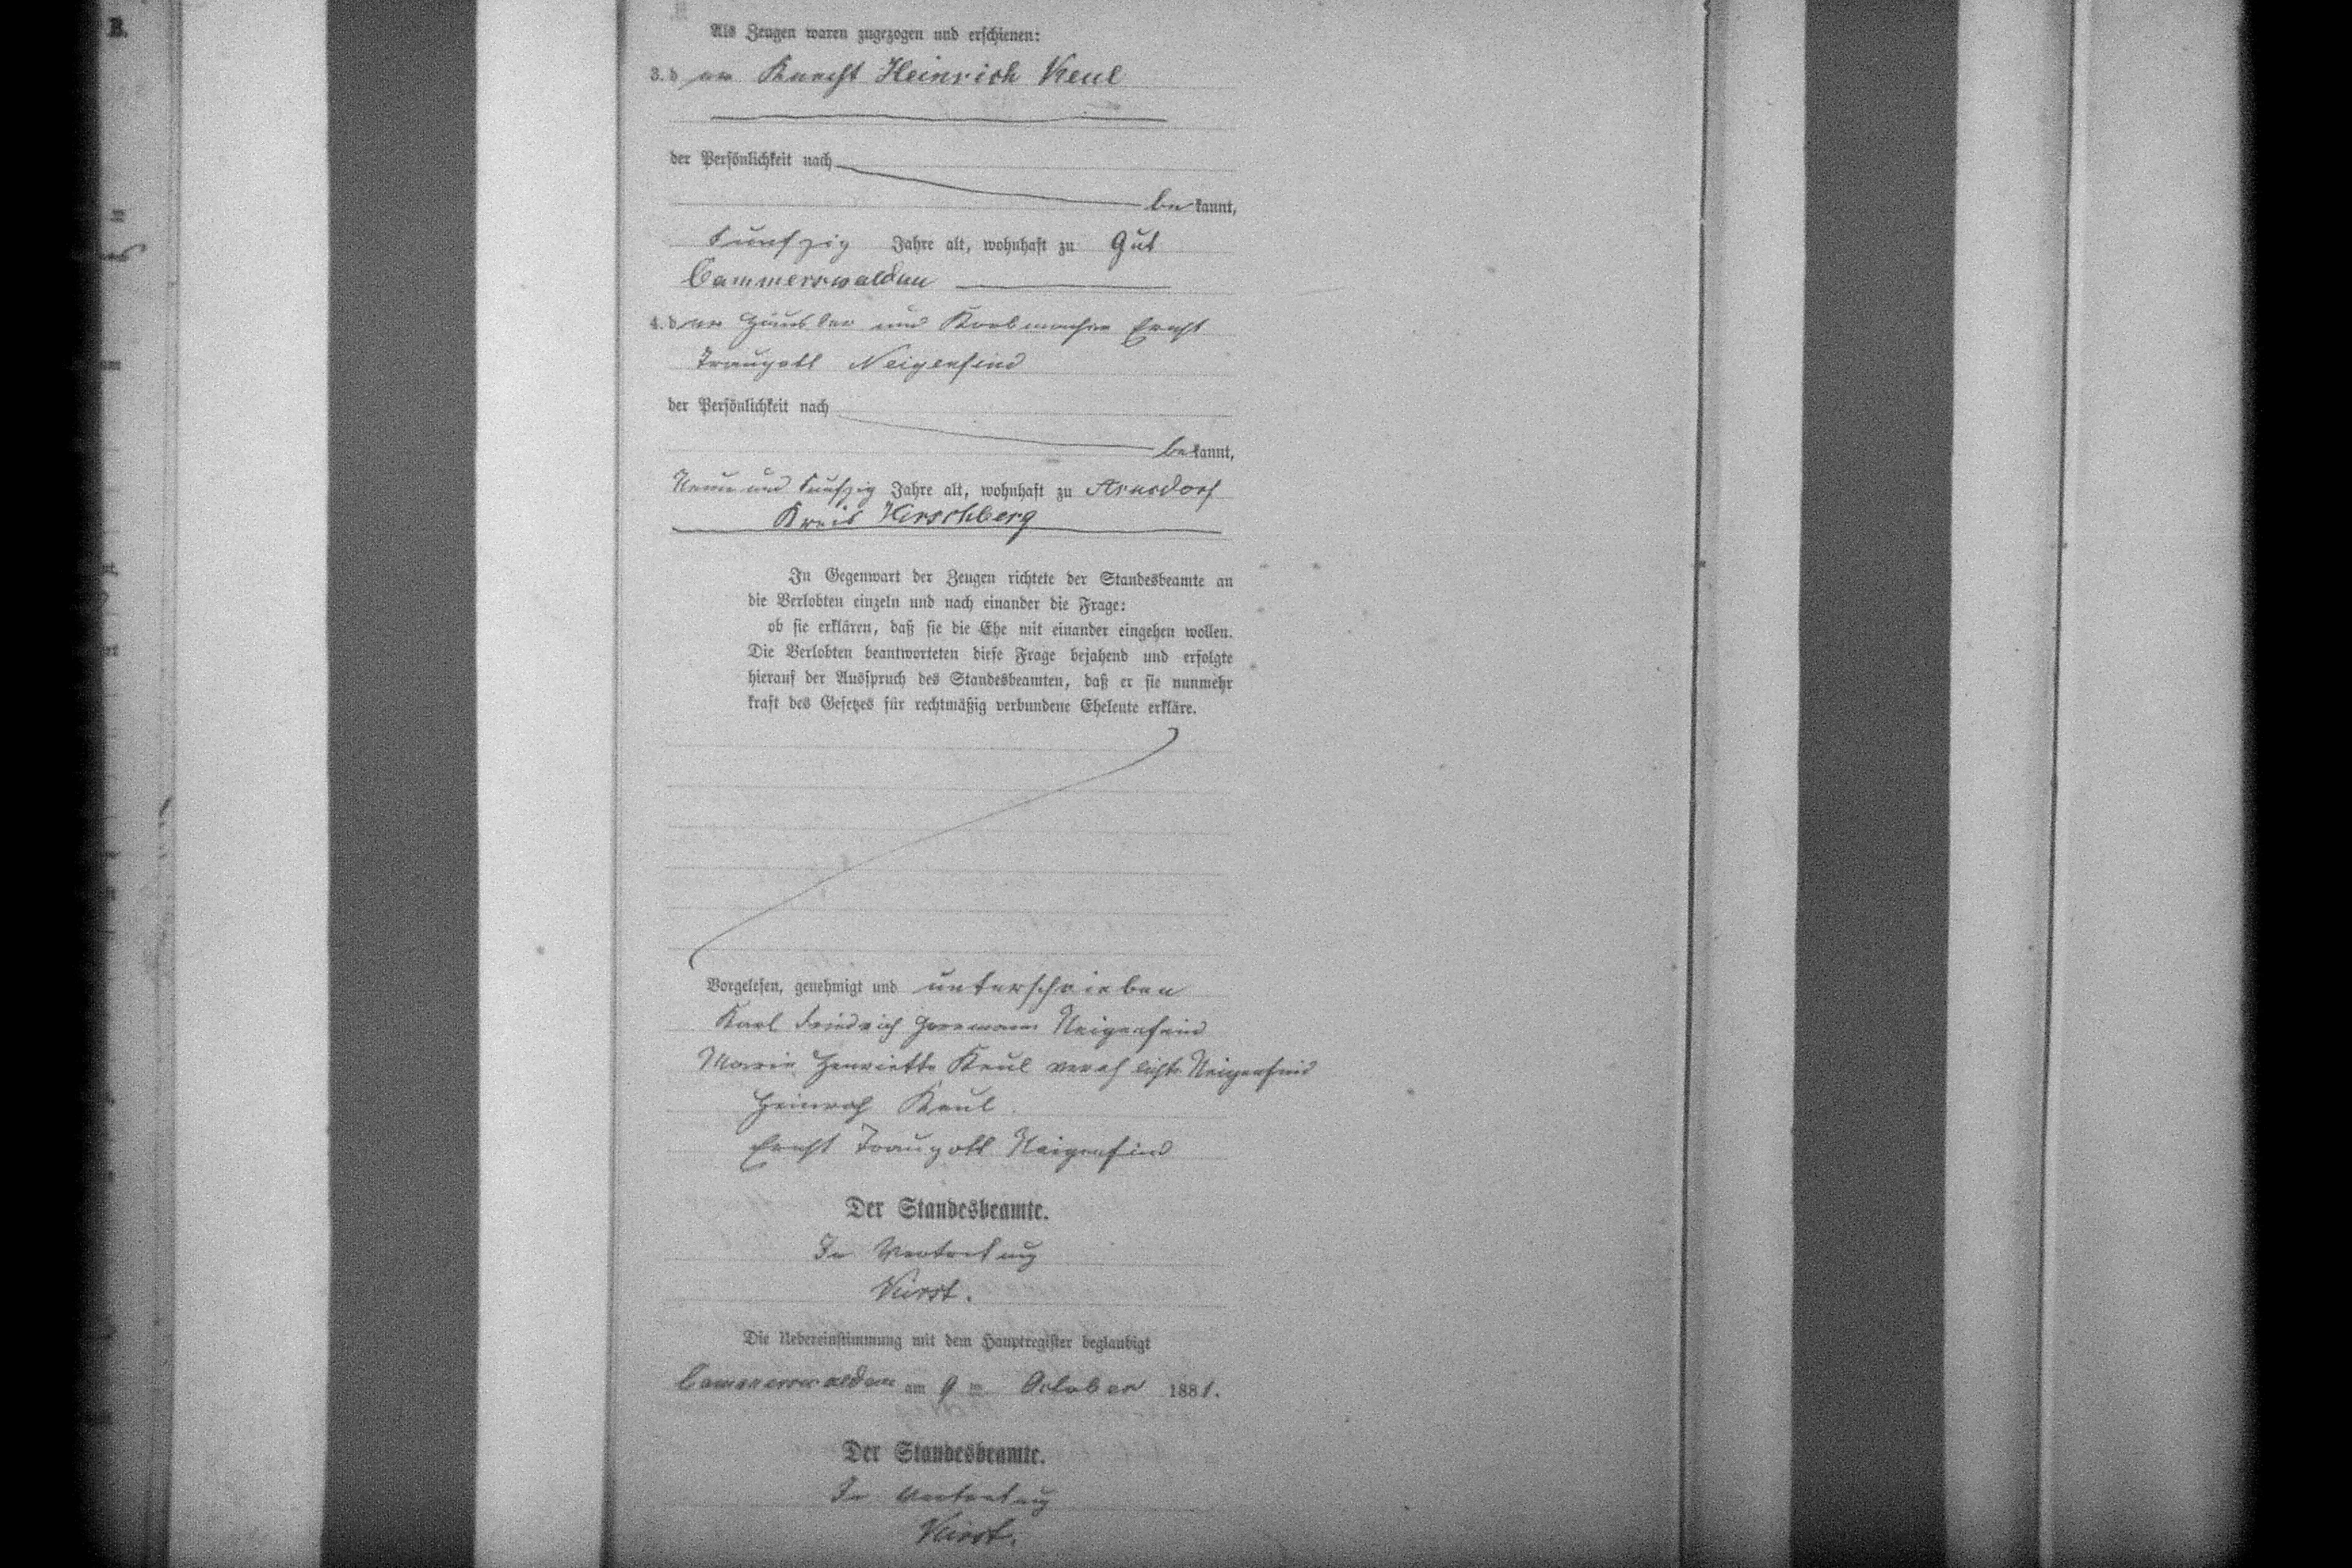 Als Zeugen waren zugezogen und erschienen:
3. der Knecht Heinrich Keul
der Persönlichkeit nach
bekannt,
funfzig Jahre alt, wohnhaft zu Gut
Cammerswaldau
4. der Häusler und Korbmacher Ernst
Traugott Neigenfind
der Persönlichkeit nach
bekannt,
Neun und funfzig Jahre alt, wohnhaft zu Arnsdorf
Kreis Hirschberg
In Gegenwart der Zeugen richtete der Standesbeamte an
die Verlobten einzeln und nach einander die Frage:
ob sie erklären, daß sie die Ehe mit einander eingehen wollen.
Die Verlobten beantworteten diese Frage bejahend und erfolgte
hierauf der Ausspruch des Standesbeamten, daß er sie nunmehr
kraft des Gesetzes für rechtmäßig verbundene Eheleute erkläre.
Vorgelesen, genehmigt und unterschrieben
Karl Friedrich Herrmann Neigenfind
Marie Henriette Keul verehlichte Neigenfind
Heinrich Keul
Ernst Traugott Neigenfind
Der Standesbeamte.
In Vertretung
Kürst.
Die Uebereinstimmung mit dem Hauptregister beglaubigt
Cammerswaldau am 9 ten October 1881.
Der Standesbeamte.
In Vertretung
Kürst.